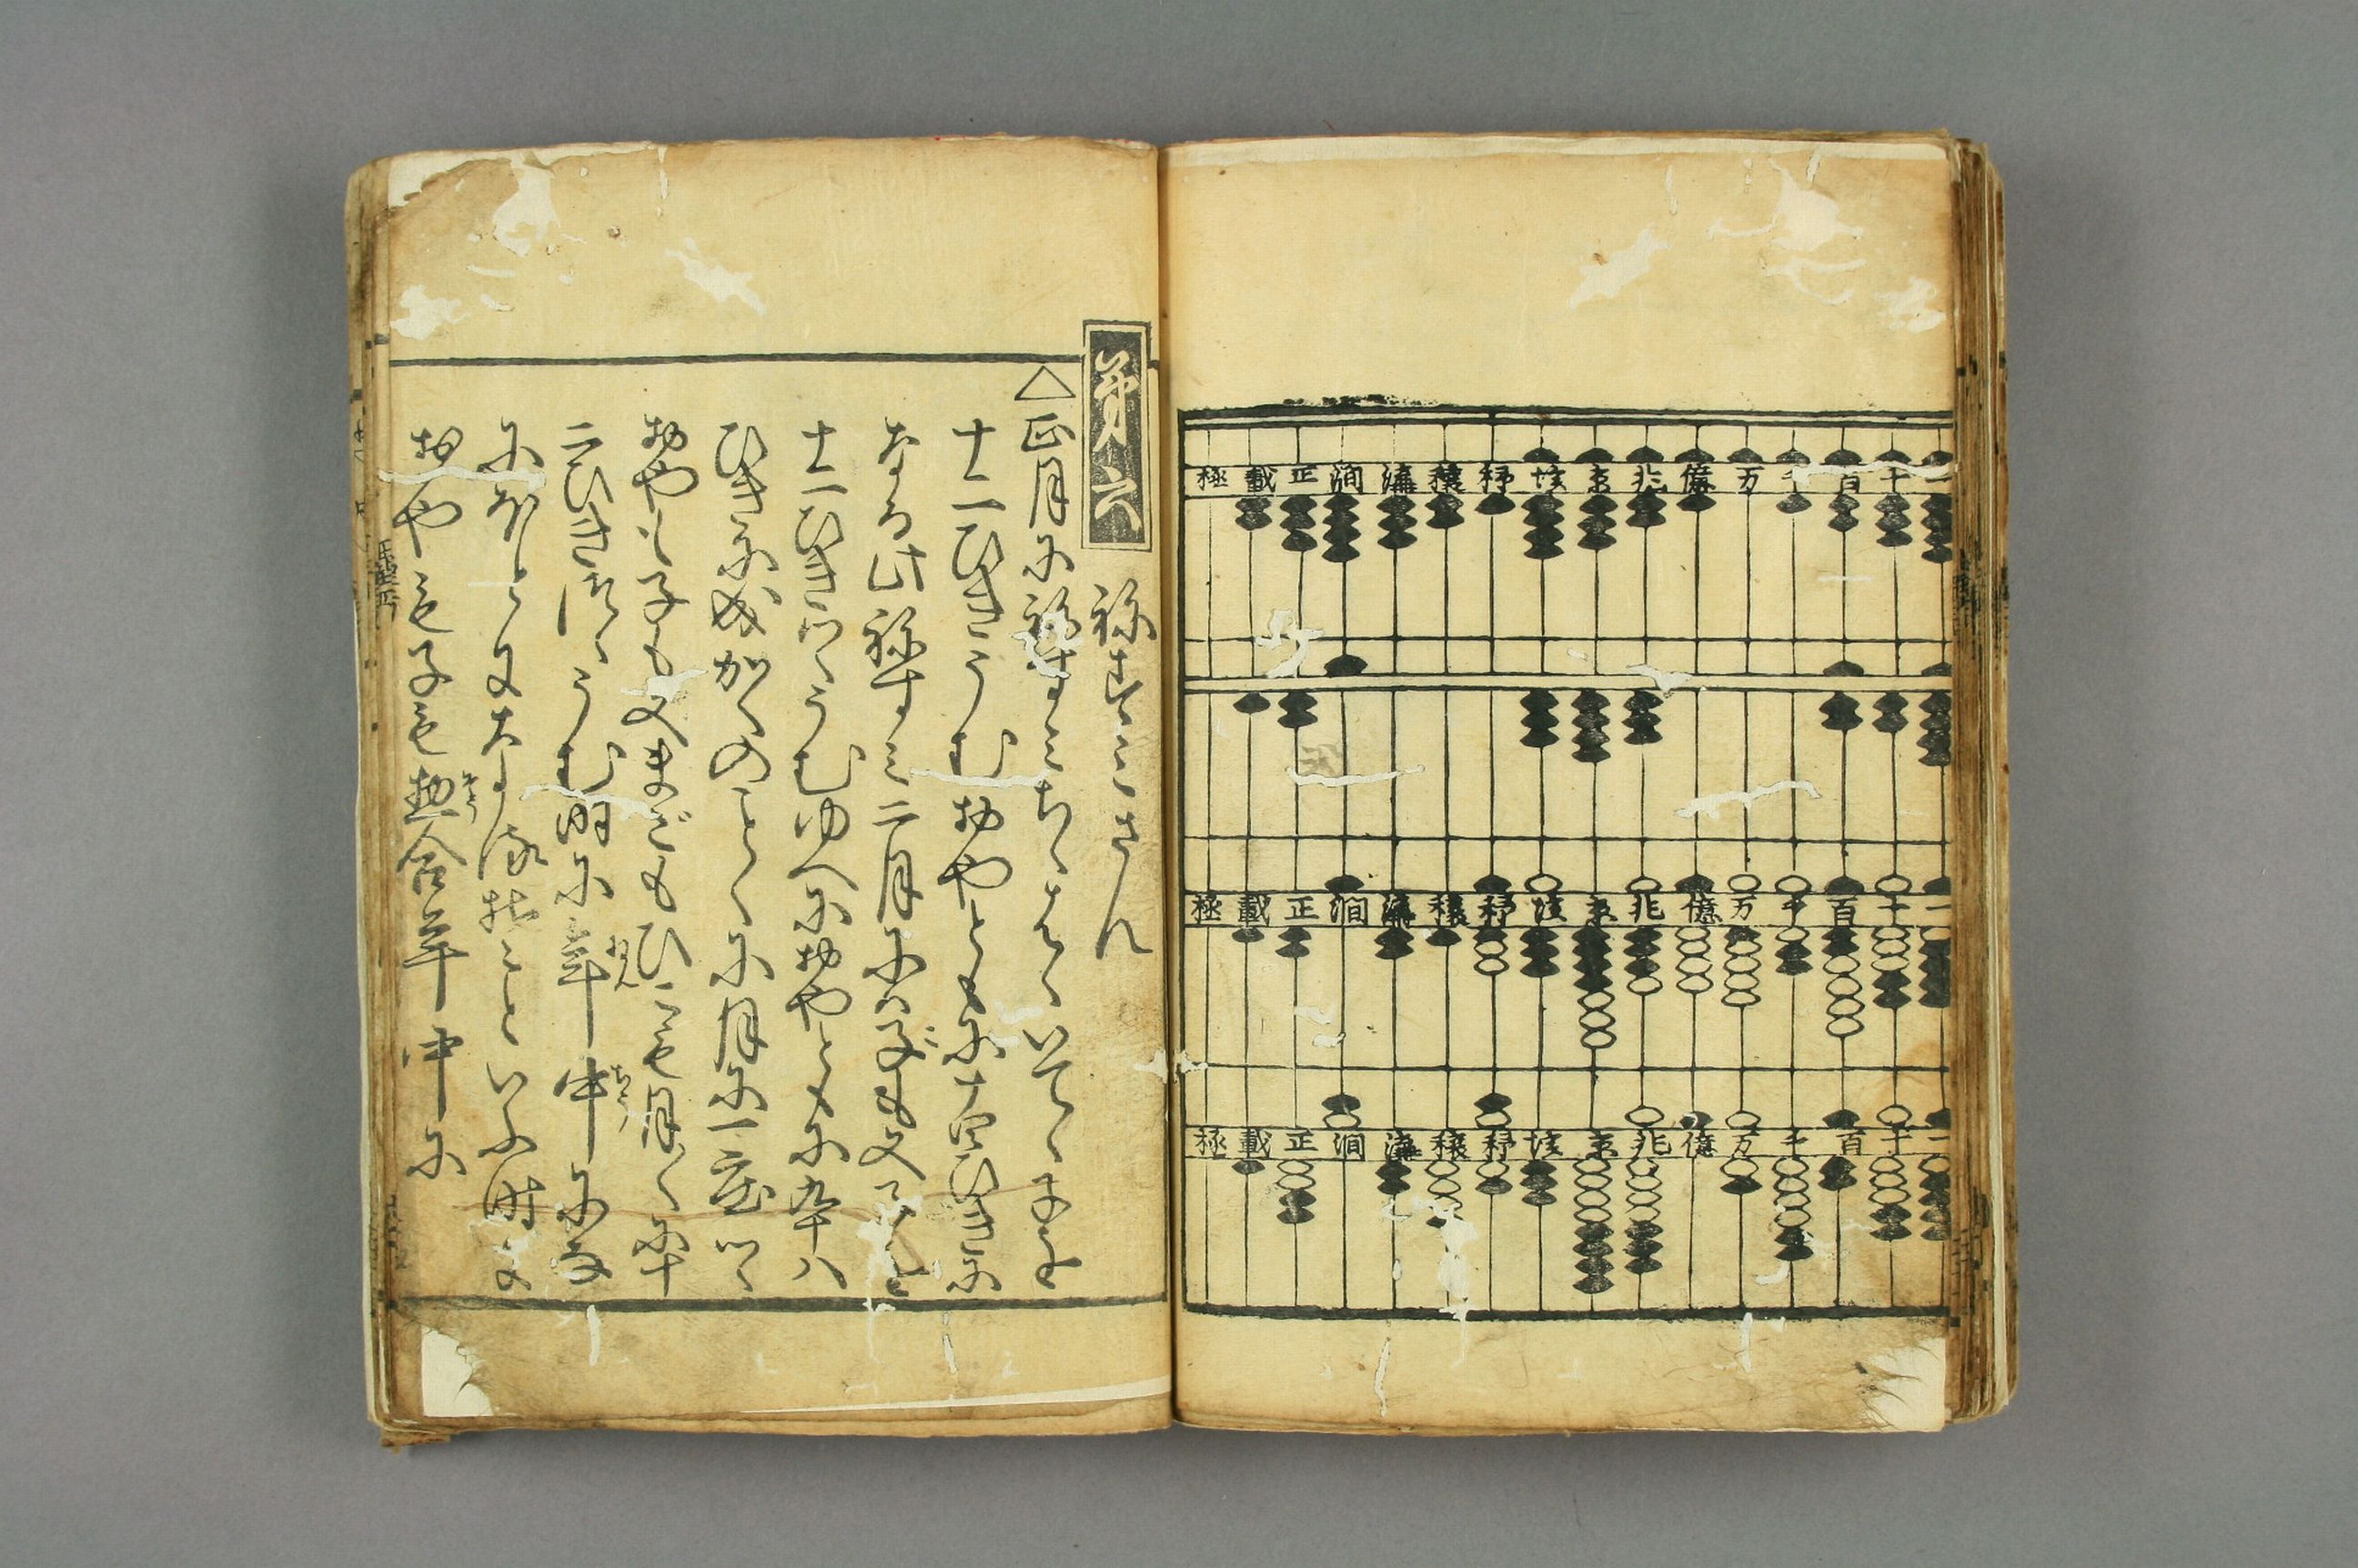 極載正澗溝穣秭垓京兆億万千百十一
極載正澗溝穣秭垓京兆億万千百十一
極載正澗溝穣秭垓京兆億万千百十一
第六 ねずミさん
△正月にねずミちゝはゝいでゝ子を
十二ひきうむおやともに十四ひきに
なる此ねずミ二月にハ子も又子を
十二ひきづゝうむゆへにおやともに九十八
ひきに成かくのことくに月に一度づゝ
おやも子も又まごもひこも月〳〵に十
二ひきづゝうむ時に年中に
ほど といふ時に
おやも子も惣合年中に